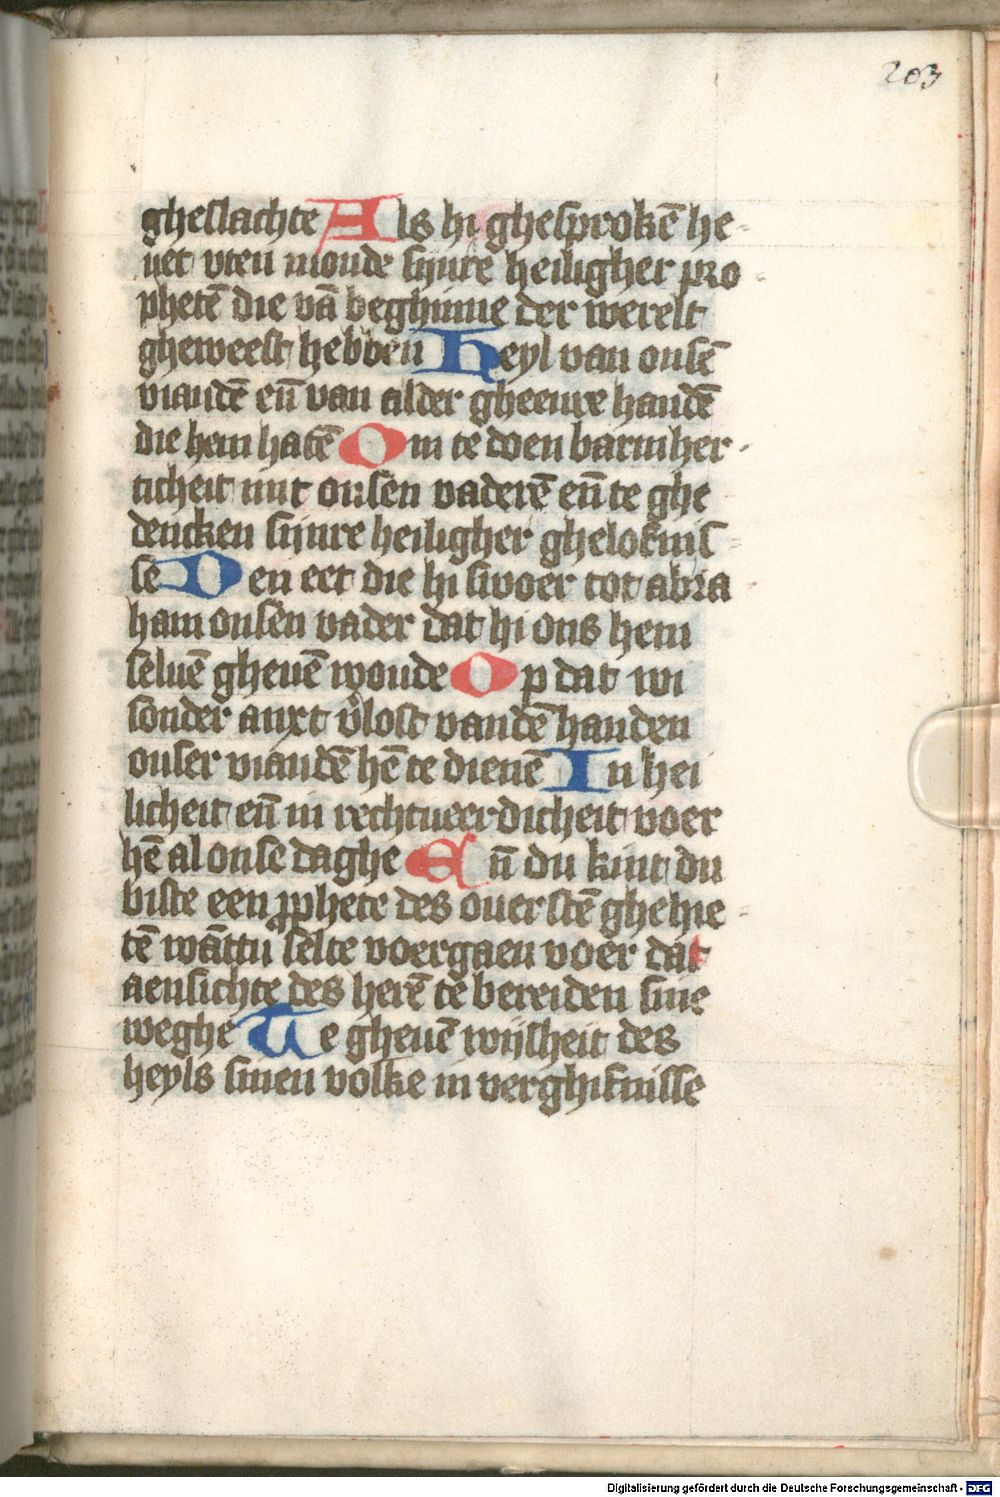 203
gheslachte Als hi ghesprokē he-
uet vten monde sijnre heiligher pro-
phetē die vā beghinne der werelt
gheweest hebben Heyl van onsē
viandē eñ van alder gheenre handē
die hem hatē Om te doen barmher-
ticheit mit onsen vaderē eñ te ghe
dencken sijnre heiligher ghelofnis-
se Den eet die hi swoer tot abra-
ham onsen vader dat hi ons hem
seluē gheuē woude Op dat wi
sonder anxt v̄lost vandē handen
onser viandē hē te dienē In hei
licheit eñ in rechtueerdicheit voer
hē al onse daghe Eñ du kint du
biste een ꝓphete des ouerstē ghehie-
tē wāttu selte voergaen voer dat
aensichte des herē te bereiden sine
weghe Te gheuē wijsheit des
heyls sinen volke in verghifnisse
Digitalisierung gefördert durch die Deutsche Forschungsgemeinschaft - DFG